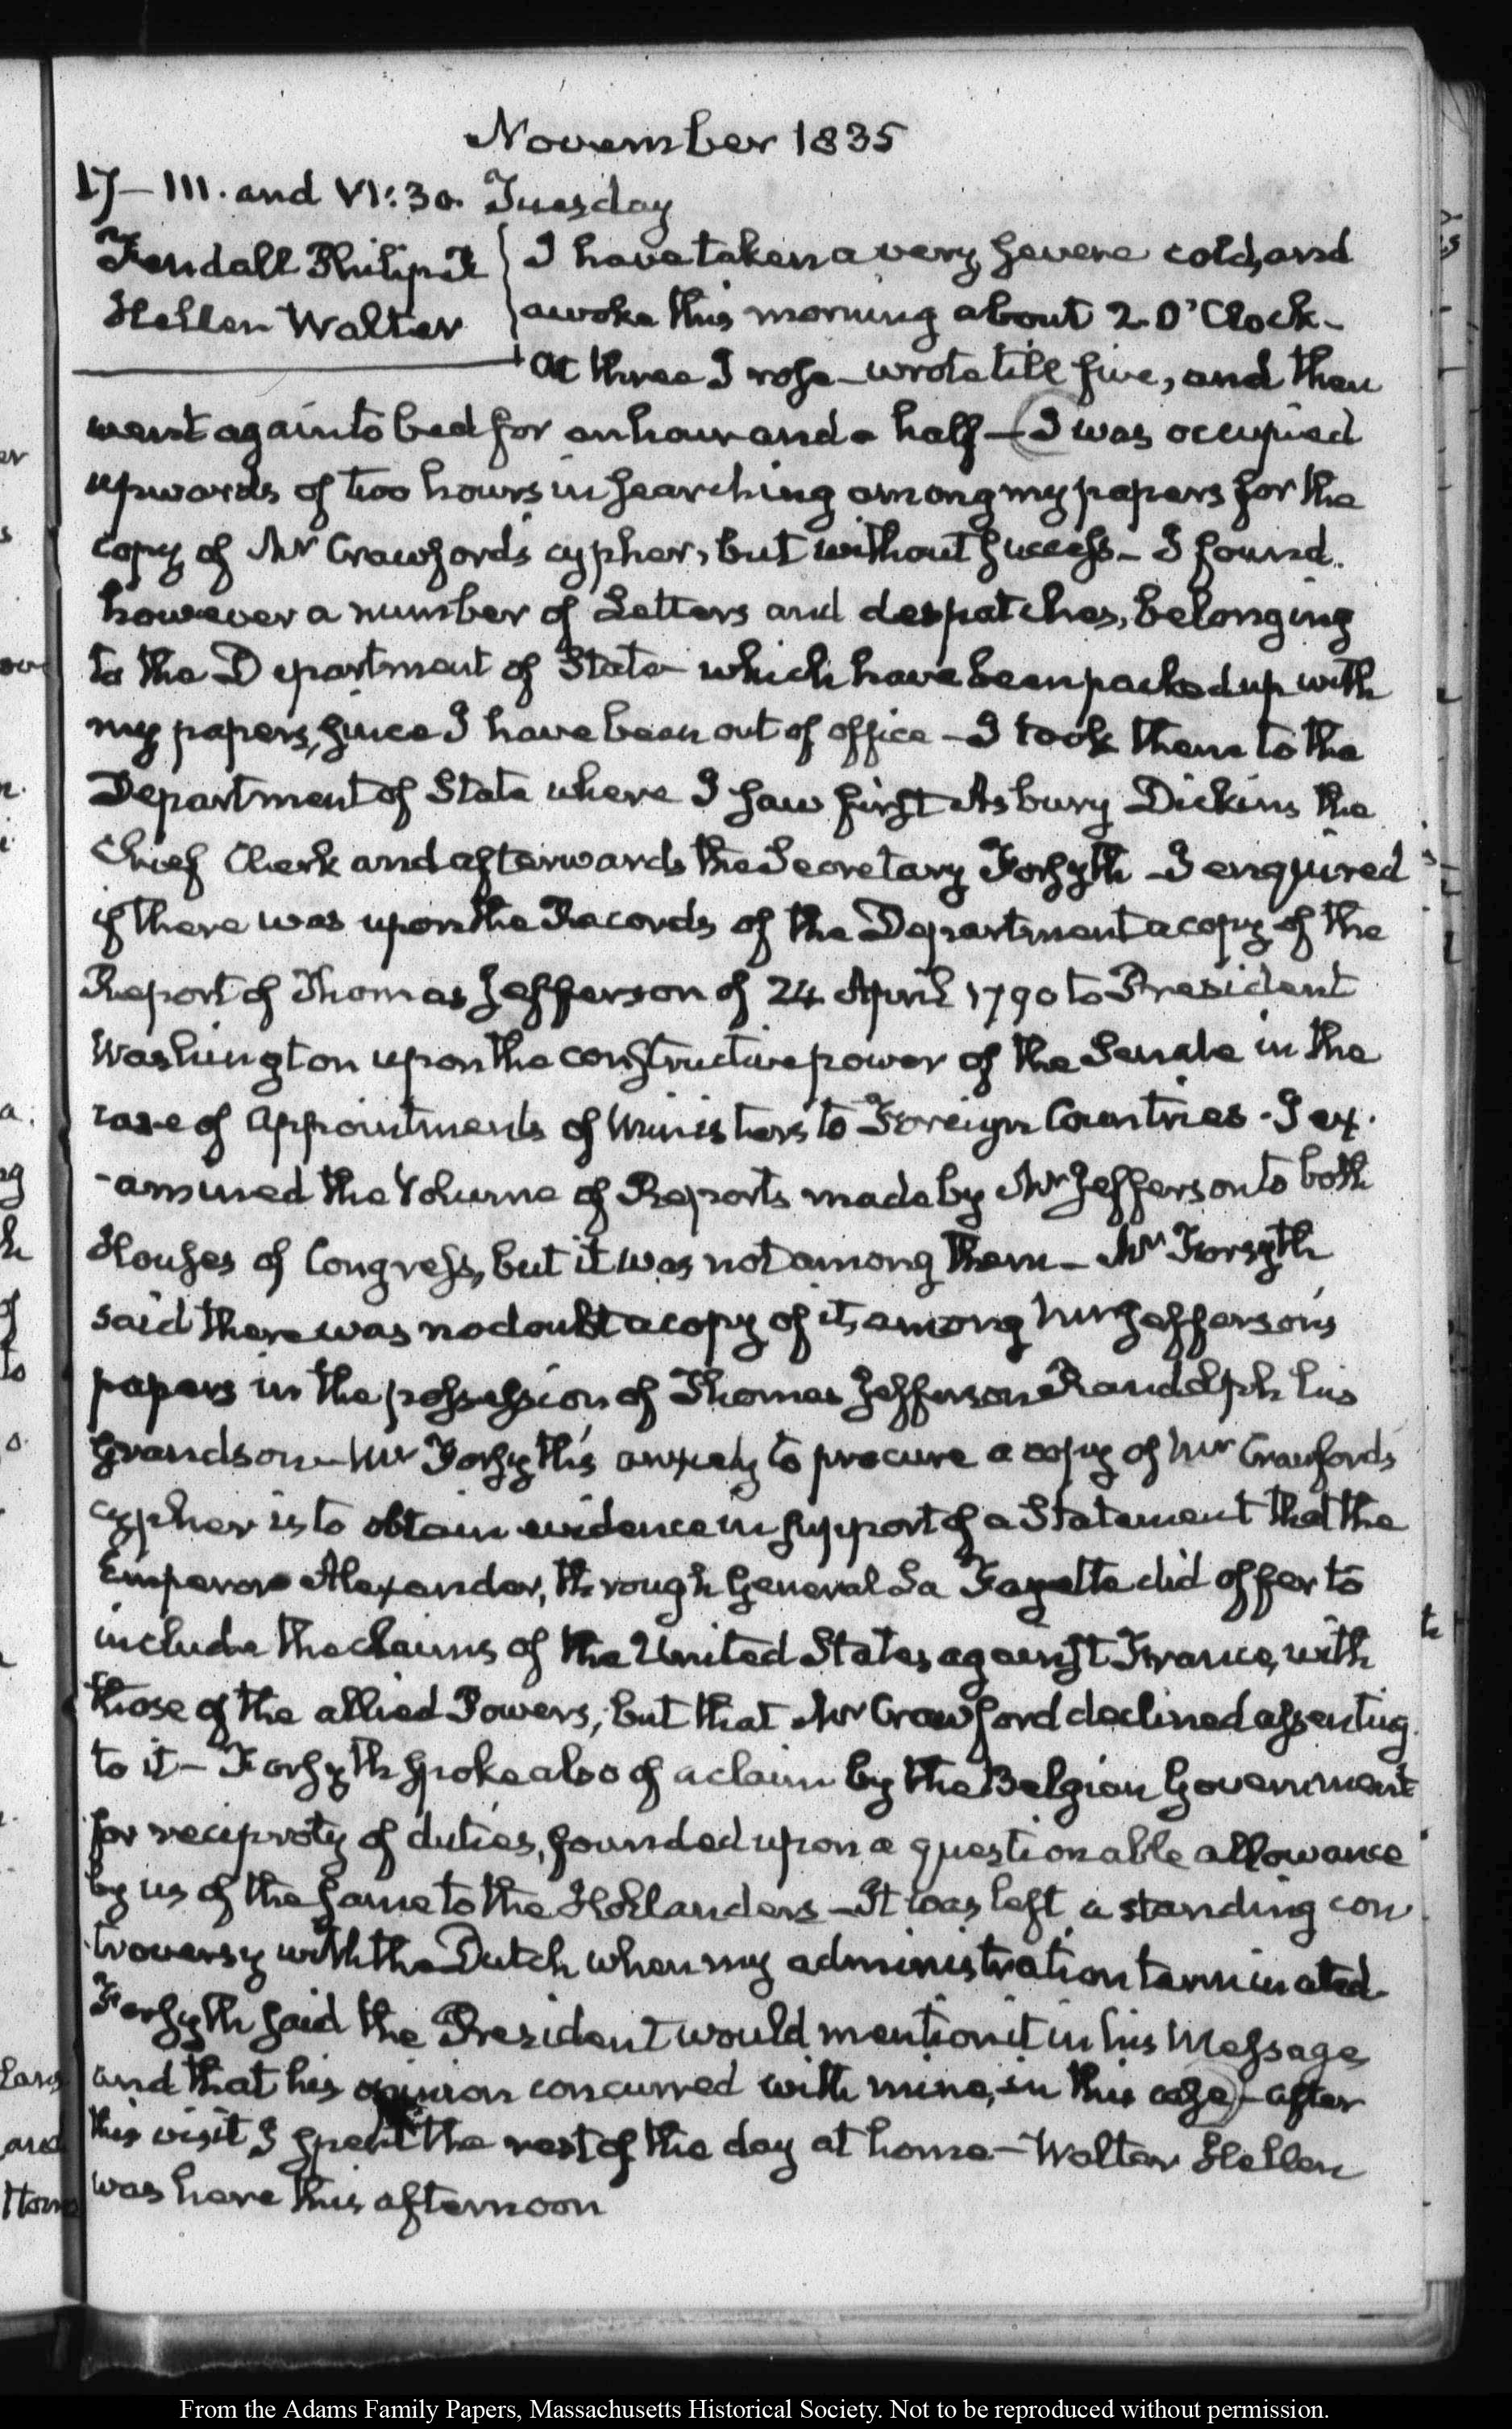 November 1835
17 – III. and VI:30. Tuesday
Fendall Philip R
Hellen Walter
I have taken a very severe cold, and
awoke this morning about 2 O'Clock –
at three I rose – wrote till five, and then
went again to bed for an hour and a half – I was occupied
upwards of two hours in searching among my papers for the
copy of Mr Crawford's cypher, but without success – I found
however a number of Letters and despatches, belonging
to the Department of State which have been packed up with
my papers, since I have been out of office – I took them to the
Department of State where I saw first Asbury Dickins the
Chief Clerk and afterwards the Secretary Forsyth – I enquired
if there was upon the Records of the Department a copy of the
Report of Thomas Jefferson of 24 April 1790 to President
Washington upon the constructive power of the Senate in the
case of appointments of Ministers to Foreign Countries – I ex-
-amined the Volume of Reports made by Mr Jefferson to both
Houses of Congress, but it was not among them – Mr Forsyth
said there was no doubt a copy of it, among Mr Jefferson's
papers in the possession of Thomas Jefferson Randolph his
Grandson – Mr Forsyth's anxiety to procure a copy of Mr Crawford's
cypher is to obtain evidence in support of a Statement that the
Emperor Alexander, through General La Fayette did offer to
include the claims of the United States against France, with
those of the allied Powers, but that Mr Crawford declined assenting
to it – Forsyth spoke also of a claim by the Belgian Government
for reciproty of duties, founded upon a questionable allowance
by us of the same to the Hollanders – It was left a standing con
troversy with the Dutch when my administration terminated.
Forsyth said the President would mention it in his Message
and that his opinion concurred with mine, in this case – after
this visit I spent the rest of the day at home – Walter Hellen
was here this afternoon
From the Adams Family Papers, Massachusetts Historical Society. Not to be reproduced without permission.